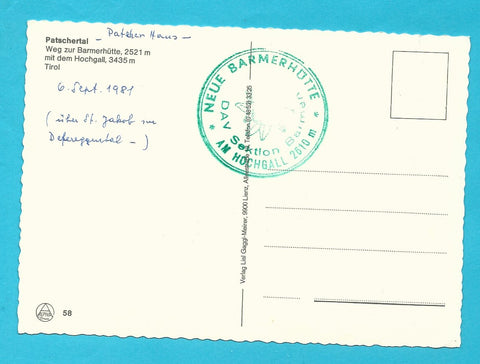 Patschertal - Patscher Haus -
Weg zur Barmerhütte, 2521 m
mit dem Hochgall, 3435 m
Tirol
6. Sept. 1981
(über St. Jakob im
Defereggental -)
* NEUE BARMERHÜTTE *
DAV Sektion Barmen
AM HOCHGALL 2610 m
Verlag Lisl Gaggl-Meirer, 9900 Lienz, Telefon (0 48 52) 33 25
58